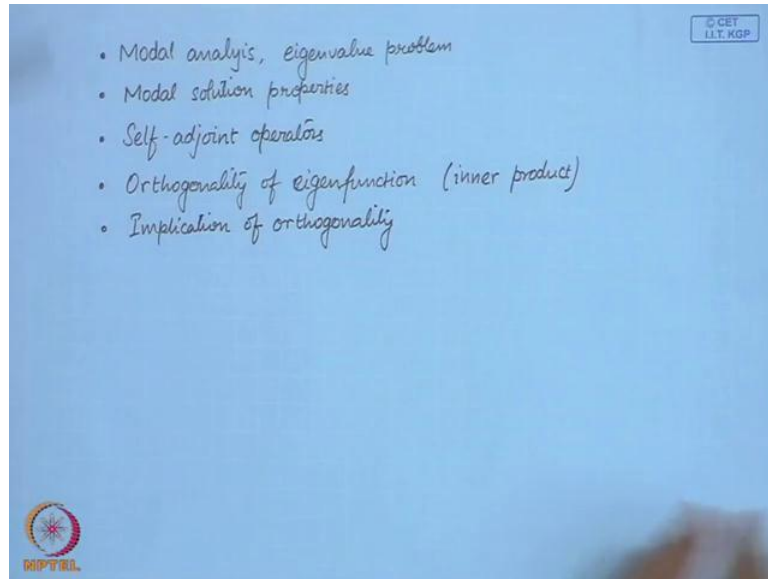 © CET
I.I.T. KGP
• Modal analyis, eigenvalue problem
• Modal solution properties
• Self-adjoint operators
• Orthogonality of eigenfunction (inner product)
• Implication of orthogonality
NPTEL